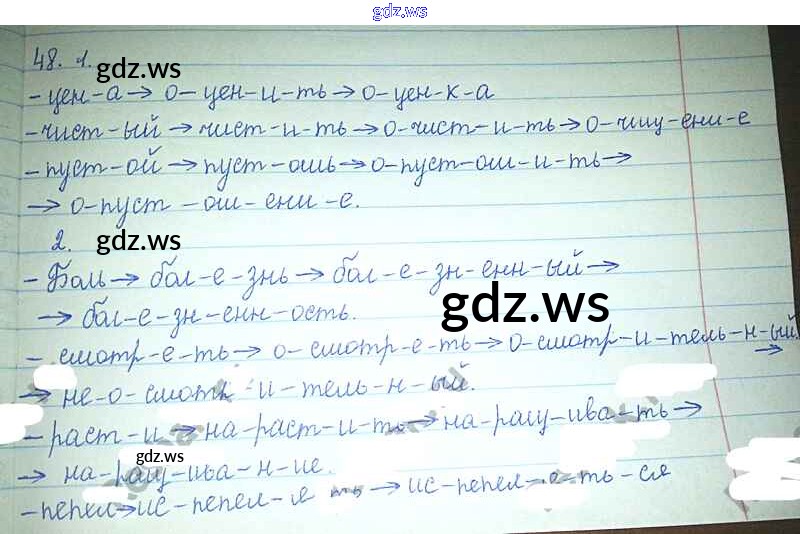 gdz.ws
48. 1.
gdz.ws
- цен-а → о-цен-и-ть → о-цен-к-а
- чист-ый → чист-и-ть → о-чист-и-ть → о-чищ-ени-е
- пуст-ой → пуст-ошь → о-пуст-ош-и-ть →
→ о-пуст-ош-ени-е.
2. gdz.ws
- Боль → бол-е-знь → бол-е-зн-енн-ый →
→ бол-е-зн-енн-ость.
gdz.ws
- смотр-е-ть → о-смотр-е-ть → о-смотр-и-тель-н-ый →
→ не-о-смотр-и-тель-н-ый.
- раст-и → на-раст-и-ть → на-ращ-ива-ть →
gdz.ws
→ на-ращ-ива-н-ие.
- пепел → ис-пепел-я ть → ис-пепел-я-ть-ся